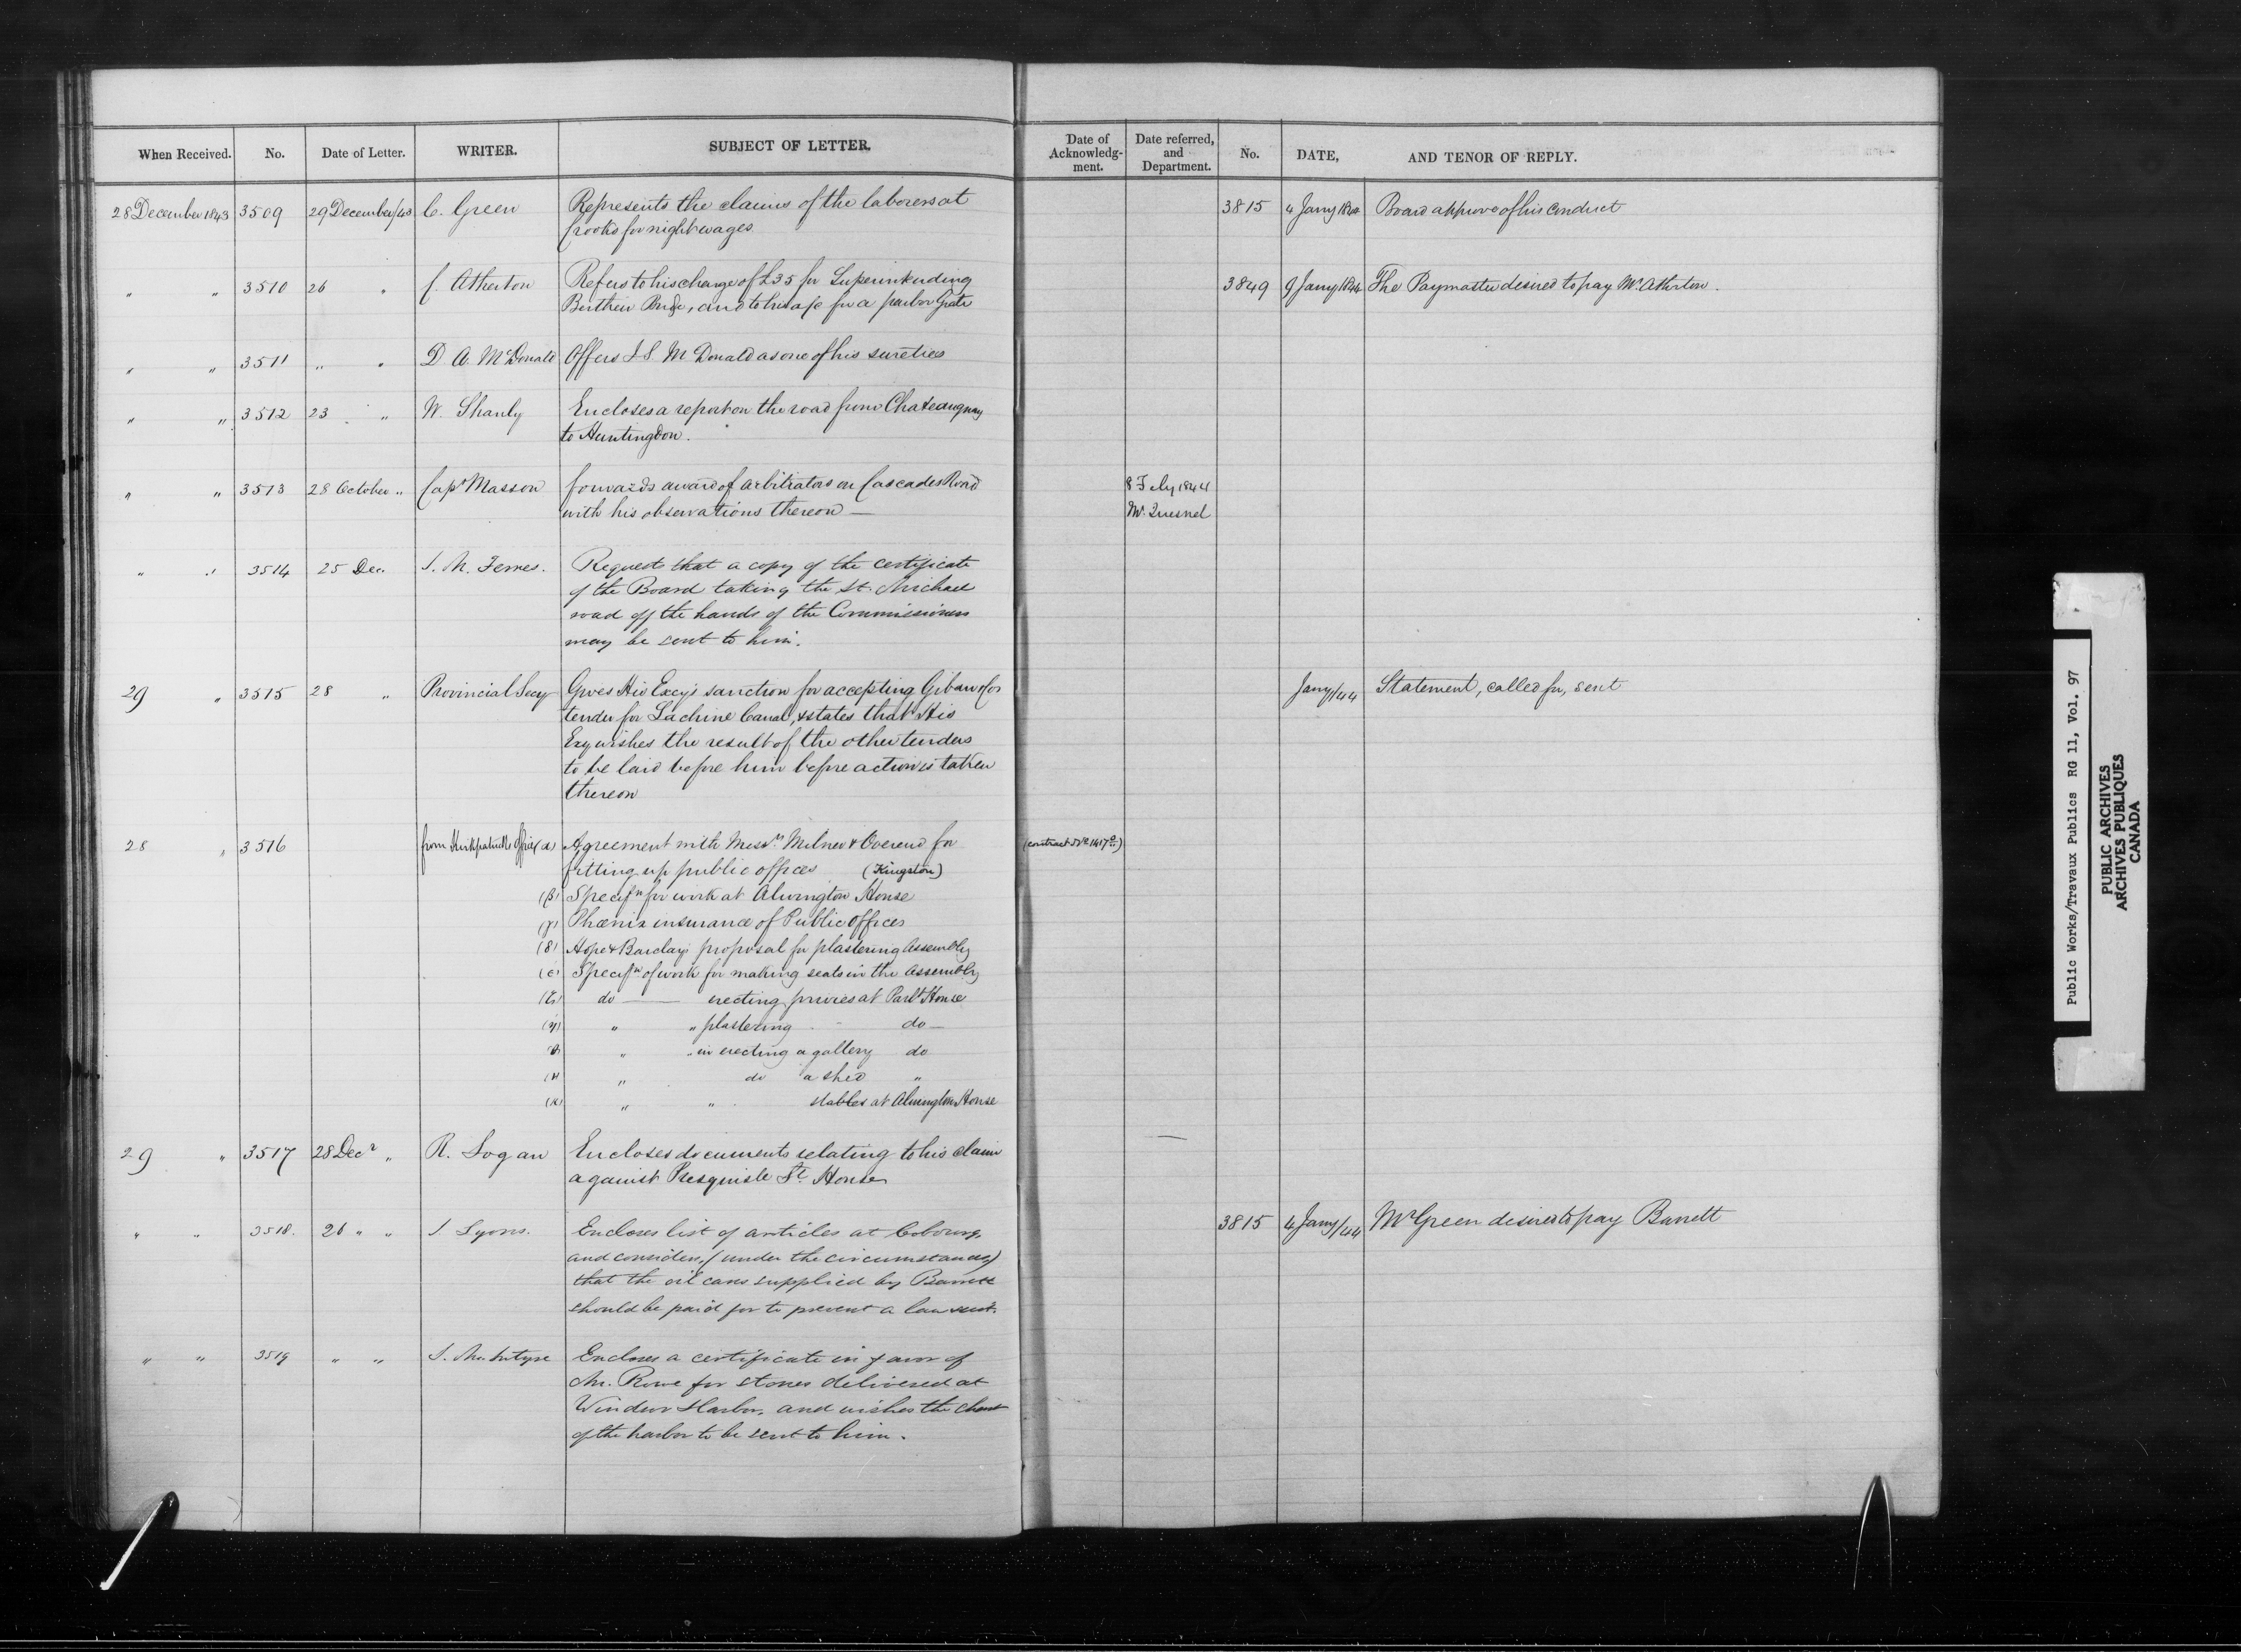 When Received. No. Date of Letter. WRITER. SUBJECT OF LETTER. Date of Acknowledg-ment. Date referred, and Department. No. DATE, AND TENOR OF REPLY.
28 December 1843 3509 29 December/43 C. Green Represents the claims of the laborers at 3815 4 Jany 1844 Board approve of his conduct
for night wages
" " 3510 26 " J. Atherton Refers to his charge of £35 for Superintending 3849 9 Jany 1844 The Paymaster desired to pay Mr. Atherton.
Berthier Bridge, and to his a/c for a parlor Grate
" " 3511 " " D A. McDonald Offers J S McDonald as one of his sureties
" " 3512 23 " W. Shanly Encloses a report on the road from Chateauguay
to Huntingdon.
" " 3513 28 October " Capt Masson forwards award of arbitrators on Cascades Road 8 Feby 1844
with his observations thereon — Mr. Quesnel
" " 3514 25 Dec. J. M. Ferres. Request that a copy of the certificate
of the Board taking the St. Michael
road off the hands of the Commissioners
may be sent to him.
29 " 3515 28 " Provincial Secy Gives His Excy's sanction for accepting tender for Lachine Canal, & states that His Jany/44 Statement, called for, sent
Exy wishes the result of the other tenders
to be laid before him before action is taken
thereon
28 " 3516 from Kirkpatrick's Office (α) Agreement with Messrs. Milner & Overend for (contract No. 1417)
fitting up public offices (Kingston)
(β) Specifn for work at Alwington House
(γ) Phœnix insurance of Public Offices
(δ) Hope & Barclay's proposal for plastering Assembly
(ε) Specifn of work for making seats in the Assembly
(ζ) do — erecting privies at Parlt House
(η) " " plastering do —
(θ) " " in erecting a gallery do
(ι) " do a shed "
(κ) " " stables at Alwington House
29 " 3517 28 Decr " R. Logan Encloses documents relating to his claim —
against Presquisle Lt. House
" " 3518. 26 " " J. Lyons. Encloses list of articles at Cobourg, 3815 4 Jany/44 Mr Green desired to pay Barrett
and considers, (under the circumstances)
that the oil cans supplied by Barrett
should be paid for to prevent a law suit.
" " 3519 " " J. McIntyre Encloses a certificate in favor of
Mr. Rowe for stones delivered at
Windsor Harbor, and wishes the chart
of the harbor to be sent to him.
Public Works/Travaux Publics RG 11, Vol. 97
PUBLIC ARCHIVES
ARCHIVES PUBLIQUES
CANADA